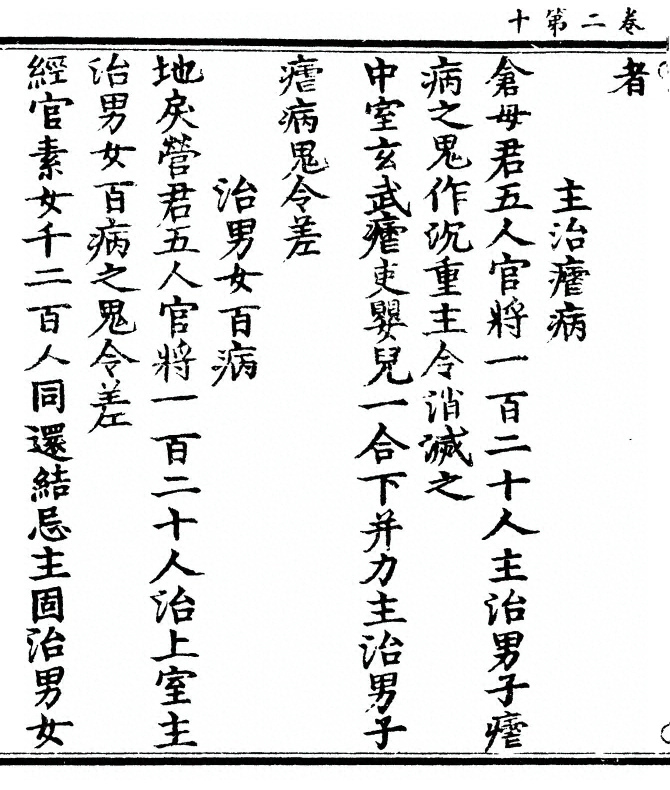 卷二第十
者
主治瘧病
倉母君五人官將一百二十人主治男子瘧
病之鬼作沉重主令消滅之
中室玄武瘧吏嬰兒一合下并力主治男子
瘧病鬼令差
治男女百病
地戾營君五人官將一百二十人治上室主
治男女百病之鬼令差
經官素女千二百人同還結忌主固治男女